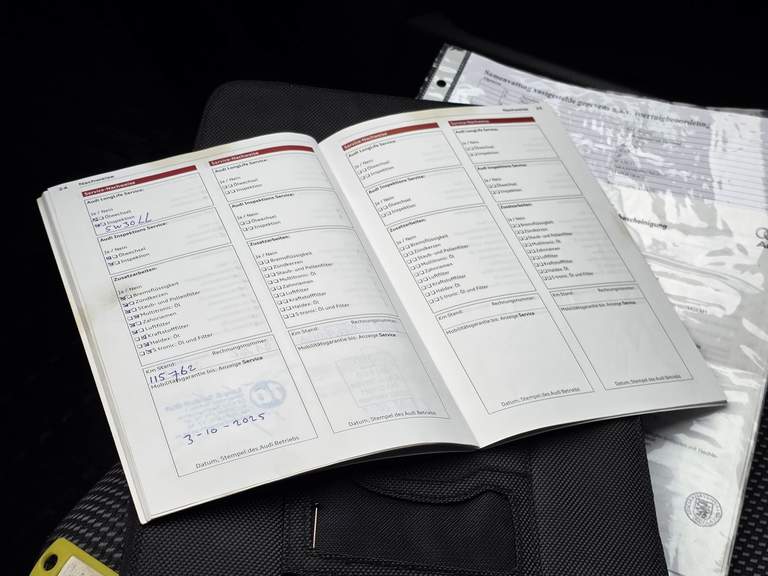 24 Nachweise
Service-Nachweise
Audi LongLife Service:
Ja / Nein
Ölwechsel
Inspektion
5W30LL
Audi Inspektions Service:
Ja / Nein
Ölwechsel
Inspektion
Zusatzarbeiten:
Ja / Nein
Bremsflüssigkeit
Zündkerzen
Staub- und Pollenfilter
Multitronic: Öl
Zahnriemen
Luftfilter
Kraftstofffilter
Haldex: Öl
S tronic: Öl und Filter
Km Stand: Rechnungsnummer:
115762
Mobilitätsgarantie bis: Anzeige Service
3-10-2025
Datum, Stempel des Audi Betriebs
Service-Nachweise
Audi LongLife Service:
Ja / Nein
Ölwechsel
Inspektion
Audi Inspektions Service:
Ja / Nein
Ölwechsel
Inspektion
Zusatzarbeiten:
Ja / Nein
Bremsflüssigkeit
Zündkerzen
Staub- und Pollenfilter
Multitronic: Öl
Zahnriemen
Luftfilter
Kraftstofffilter
Haldex: Öl
S tronic: Öl und Filter
Km Stand: Rechnungsnummer:
Mobilitätsgarantie bis: Anzeige Service
Datum, Stempel des Audi Betriebs
Nachweise
Service-Nachweise
Audi LongLife Service:
Ja / Nein
Ölwechsel
Inspektion
Audi Inspektions Service:
Ja / Nein
Ölwechsel
Inspektion
Zusatzarbeiten:
Ja / Nein
Bremsflüssigkeit
Zündkerzen
Staub- und Pollenfilter
Multitronic: Öl
Zahnriemen
Luftfilter
Kraftstofffilter
Haldex: Öl
S tronic: Öl und Filter
Km Stand: Rechnungsnummer:
Mobilitätsgarantie bis: Anzeige Service
Datum, Stempel des Audi Betriebs
Service-Nachweise
Audi LongLife Service:
Ja / Nein
Ölwechsel
Inspektion
Audi Inspektions Service:
Ja / Nein
Ölwechsel
Inspektion
Zusatzarbeiten:
Ja / Nein
Bremsflüssigkeit
Zündkerzen
Staub- und Pollenfilter
Multitronic: Öl
Zahnriemen
Luftfilter
Kraftstofffilter
Haldex: Öl
S tronic: Öl und Filter
Km Stand: Rechnungsnummer:
Mobilitätsgarantie bis: Anzeige Service
Datum, Stempel des Audi Betriebs
Samenvatting vastgestelde gegevens
bescheinigung